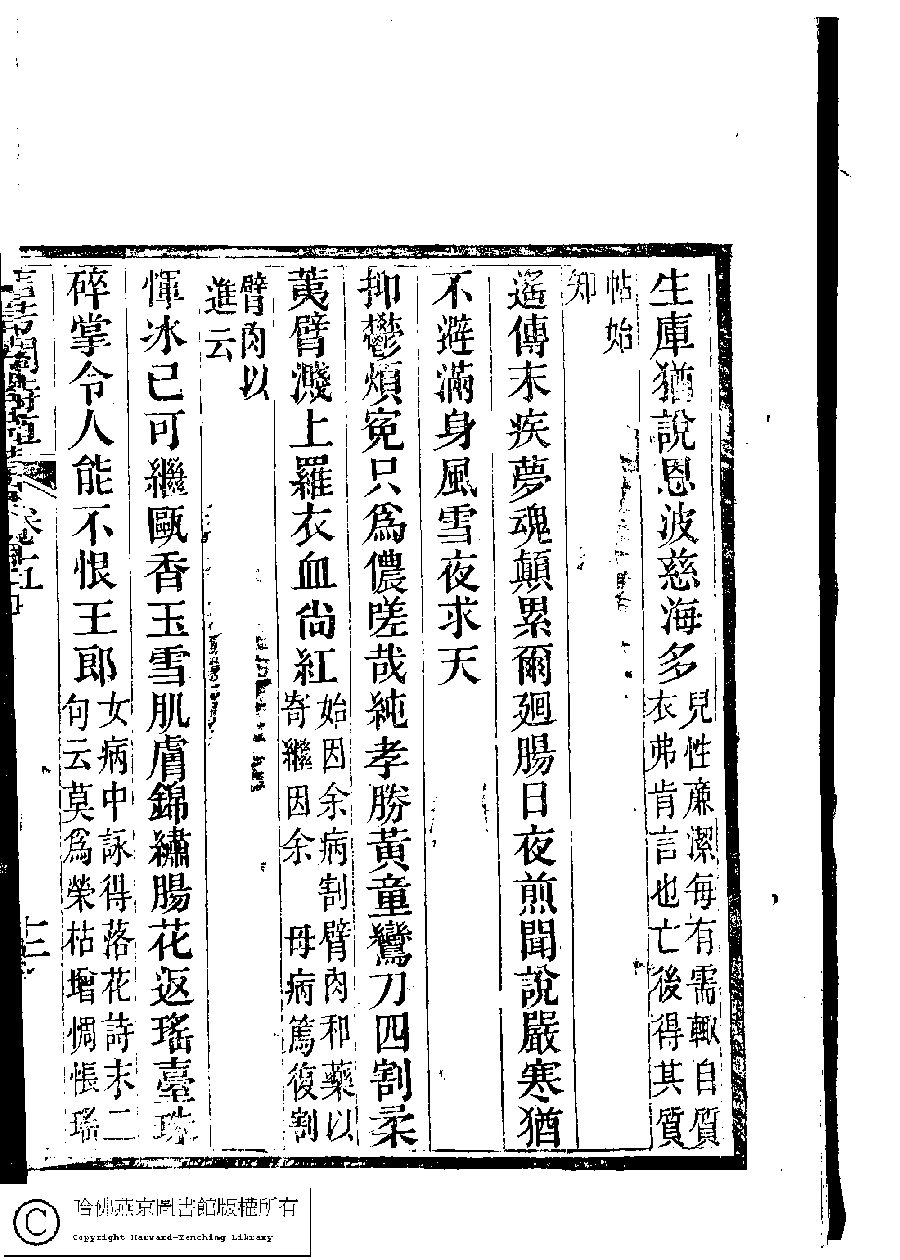 生庫猶說恩波慈海多兒性亷潔每有需輙自質衣弗肯言也亡後得其質
帖始知
遥傳末疾夢魂顛累爾廻腸日夜煎聞說嚴寒猶
不避滿身風雪夜求天
抑鬱煩寃只爲儂嗟哉純孝勝黃童鸞刀四割柔
荑臂濺上羅衣血尙紅始因余病割臂肉和藥以寄繼因余 母病篤復割
臂肉以進云
惲冰已可繼甌香玉雪肌膚錦繡腸花返瑤臺珠
碎掌令人能不恨王郎女病中詠得落花詩末二句云莫爲榮枯增惆悵瑤
哈佛燕京圖書館版權所有
Copyright Harvard-Yenching Library